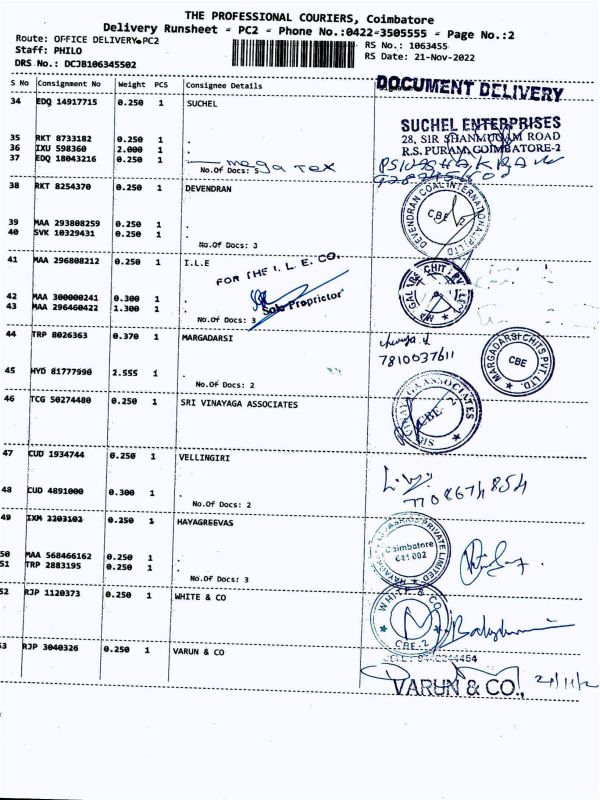 THE PROFESSIONAL COURIERS, Coimbatore
Delivery Runsheet - PC2 - Phone No.:0422-3505555 - Page No.:2
Route: OFFICE DELIVERY PC2 RS No.: 1063455
Staff: PHILO RS Date: 21-Nov-2022
DRS No.: DCJB106345502
S No Consignment No Weight PCS Consignee Details
DOCUMENT DELIVERY
34 EDQ 14917715 0.250 1 SUCHEL
SUCHEL ENTERPRISES
28, SIR SHANMUGAM ROAD
R.S. PURAM, COIMBATORE-2
35 RKT 8733182 0.250 1 .
36 IXU 598360 2.000 1 .
37 EDQ 18043216 0.250 1 . mega Tex
No.Of Docs: 5
38 RKT 8254370 0.250 1 DEVENDRAN
DEVENDRAN COAL INTERNATIONAL (P) LTD CBE
39 MAA 293808259 0.250 1 .
40 SVK 10329431 0.250 1 .
No.Of Docs: 3
41 MAA 296808212 0.250 1 I.L.E
FOR THE I. L. E. CO.
Sole Proprietor
42 MAA 300000241 0.300 1 .
43 MAA 296460422 1.300 1 .
No.Of Docs: 3
44 TRP 8026363 0.370 1 MARGADARSI
7810037611
MARGADARSI CHITS PVT. LTD. CBE
45 HYD 81777990 2.555 1 .
No.Of Docs: 2
46 TCG 50274480 0.250 1 SRI VINAYAGA ASSOCIATES
SRI VINAYAGA ASSOCIATES CBE-2
47 CUD 1934744 0.250 1 VELLINGIRI
48 CUD 4891000 0.300 1 .
No.Of Docs: 2
49 IXM 2203102 0.250 1 HAYAGREEVAS
PRIVATE LIMITED Coimbatore 641 002
50 MAA 568466162 0.250 1 .
51 TRP 2883195 0.250 1 .
No.Of Docs: 3
52 RJP 1120373 0.250 1 WHITE & CO
WHITE & CO CBE-2
53 RJP 3040326 0.250 1 VARUN & CO
VARUN & CO.,